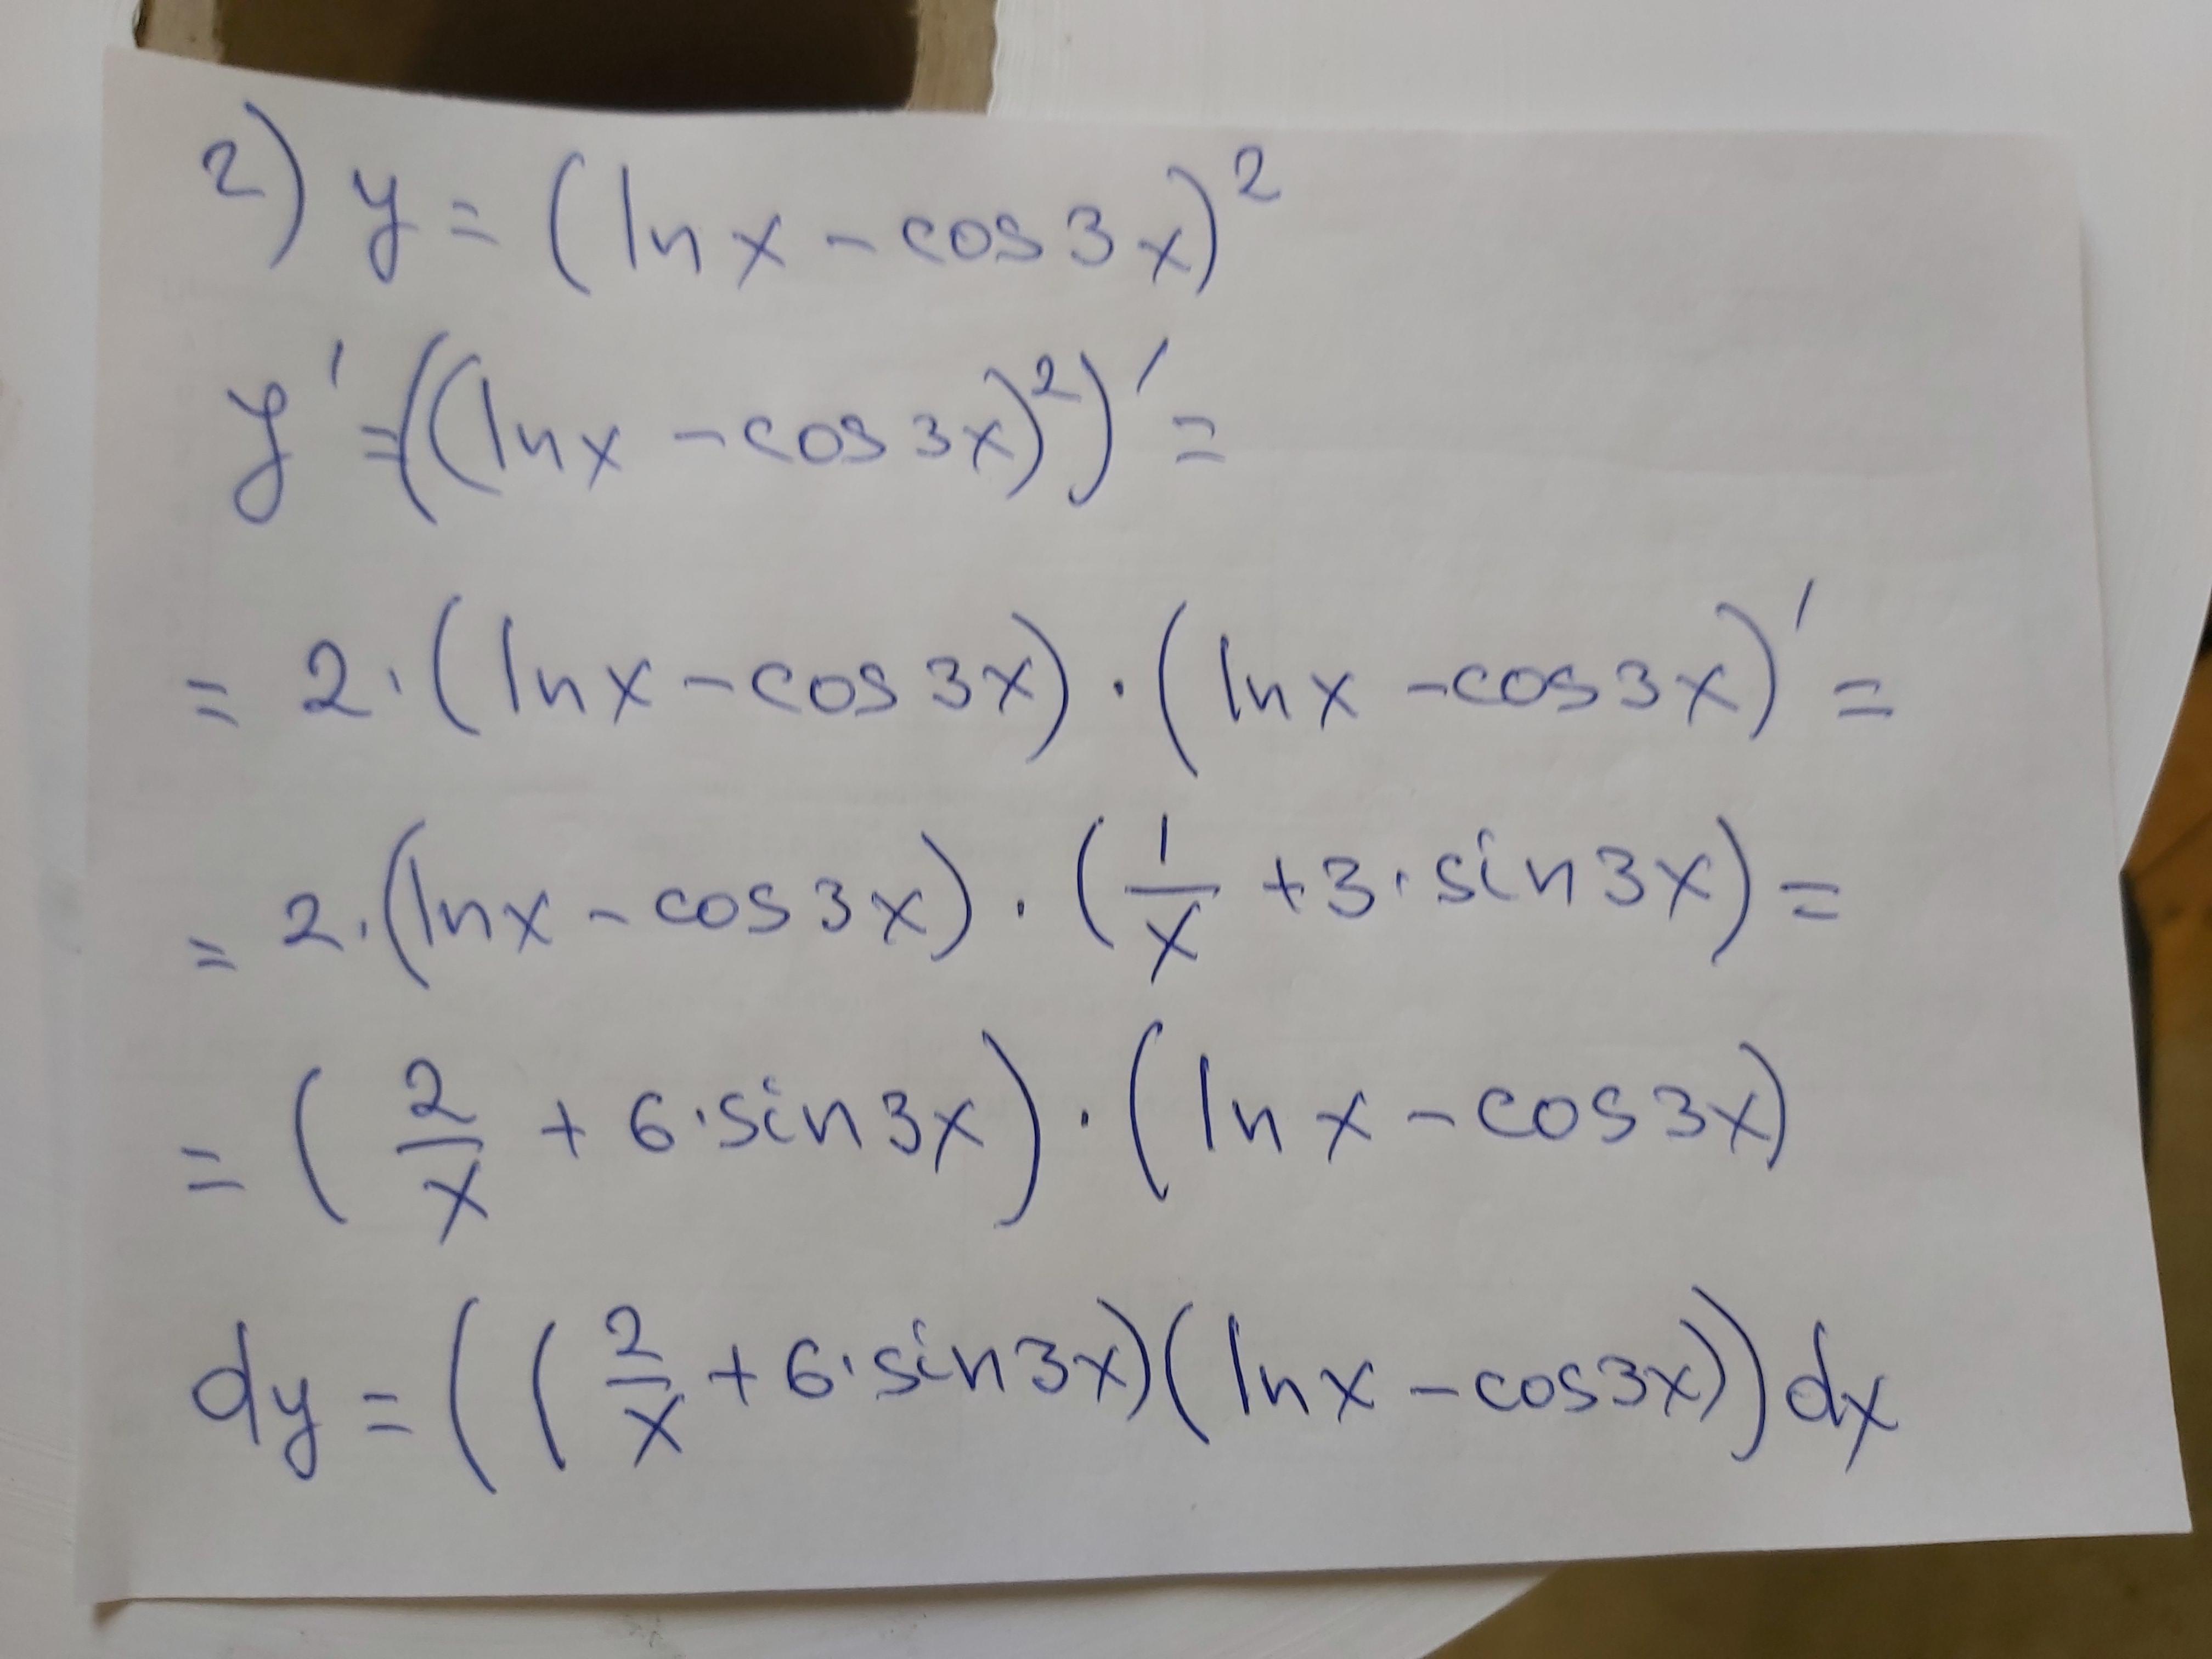 2) y = (ln x - cos 3x)²
y' = ((ln x - cos 3x)²)' =
= 2 · (ln x - cos 3x) · (ln x - cos 3x)' =
= 2 · (ln x - cos 3x) · (1/x + 3 · sin 3x) =
= (2/x + 6 · sin 3x) · (ln x - cos 3x)
dy = ((2/x + 6 · sin 3x)(ln x - cos 3x)) dx